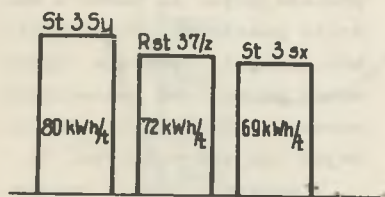 St 3 Sy
Rst 37/z
St 3 sx
80 kWh/t
72 kWh/t
69 kWh/t